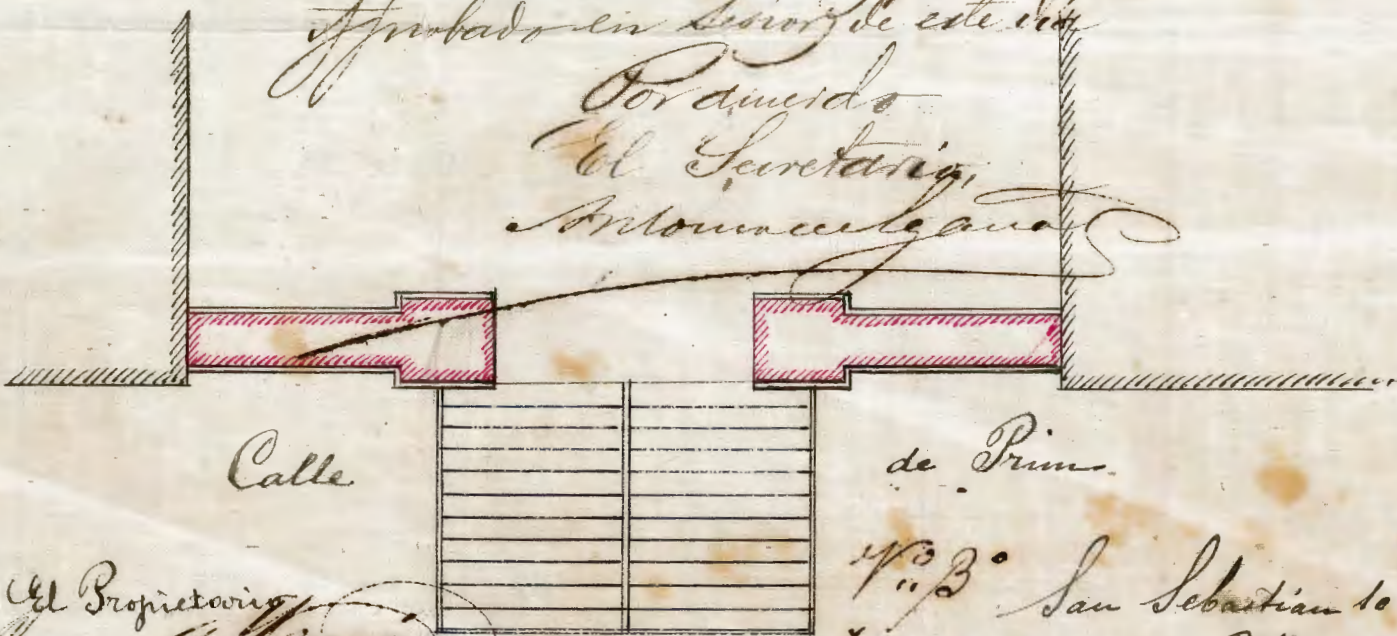 Aprobado en sesión de este día
Por acuerdo
El Secretario,
Calle de Prim
El Propietario
Vº Bº San Sebastián 10